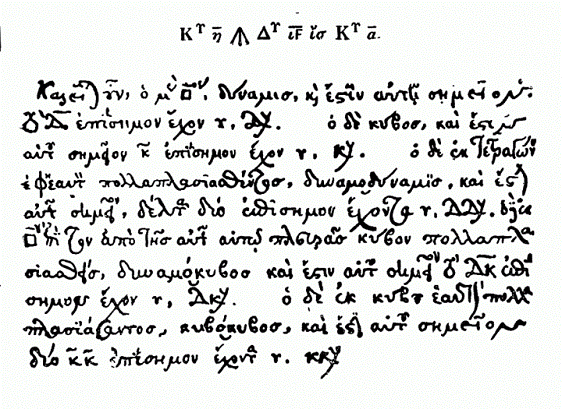 Κ^Υ η̄ ⩚ Δ^Υ ῑϛ̄ ἴσ Κ^Υ ᾱ.
Καλεῖται οὖν, ὁ μὲν □ος, δύναμις, καὶ ἔστιν αὐτῆς σημεῖον
τὸ Δ̄ ἐπίσημον ἔχον υ, Δυ. ὁ δὲ κύβος, καὶ ἔστιν
αὐτοῦ σημεῖον κ̄ ἐπίσημον ἔχον υ, κυ. ὁ δὲ ἐκ τετραγώνου
ἐφ' ἑαυτὸν πολλαπλασιασθέντος, δυναμοδύναμις, καὶ ἔστιν
αὐτοῦ σημεῖον, δέλτα δύο ἐπίσημον ἔχοντα υ, ΔΔυ. ὁ δὲ ἐκ
□ου ἐπὶ τὸν ἀπὸ τῆς αὐτοῦ πλευρᾶς κύβον πολλαπλα
σιασθέντος, δυναμόκυβος καὶ ἔστιν αὐτοῦ σημεῖον τὸ Δ̄κ̄ ἐπί
σημον ἔχον υ, Δκυ. ὁ δὲ ἐκ κύβου ἑαυτὸν πολλα
πλασιάσαντος, κυβόκυβος, καὶ ἔστιν αὐτοῦ σημεῖον
δύο κ̄κ̄ ἐπίσημον ἔχοντα υ. κκυ